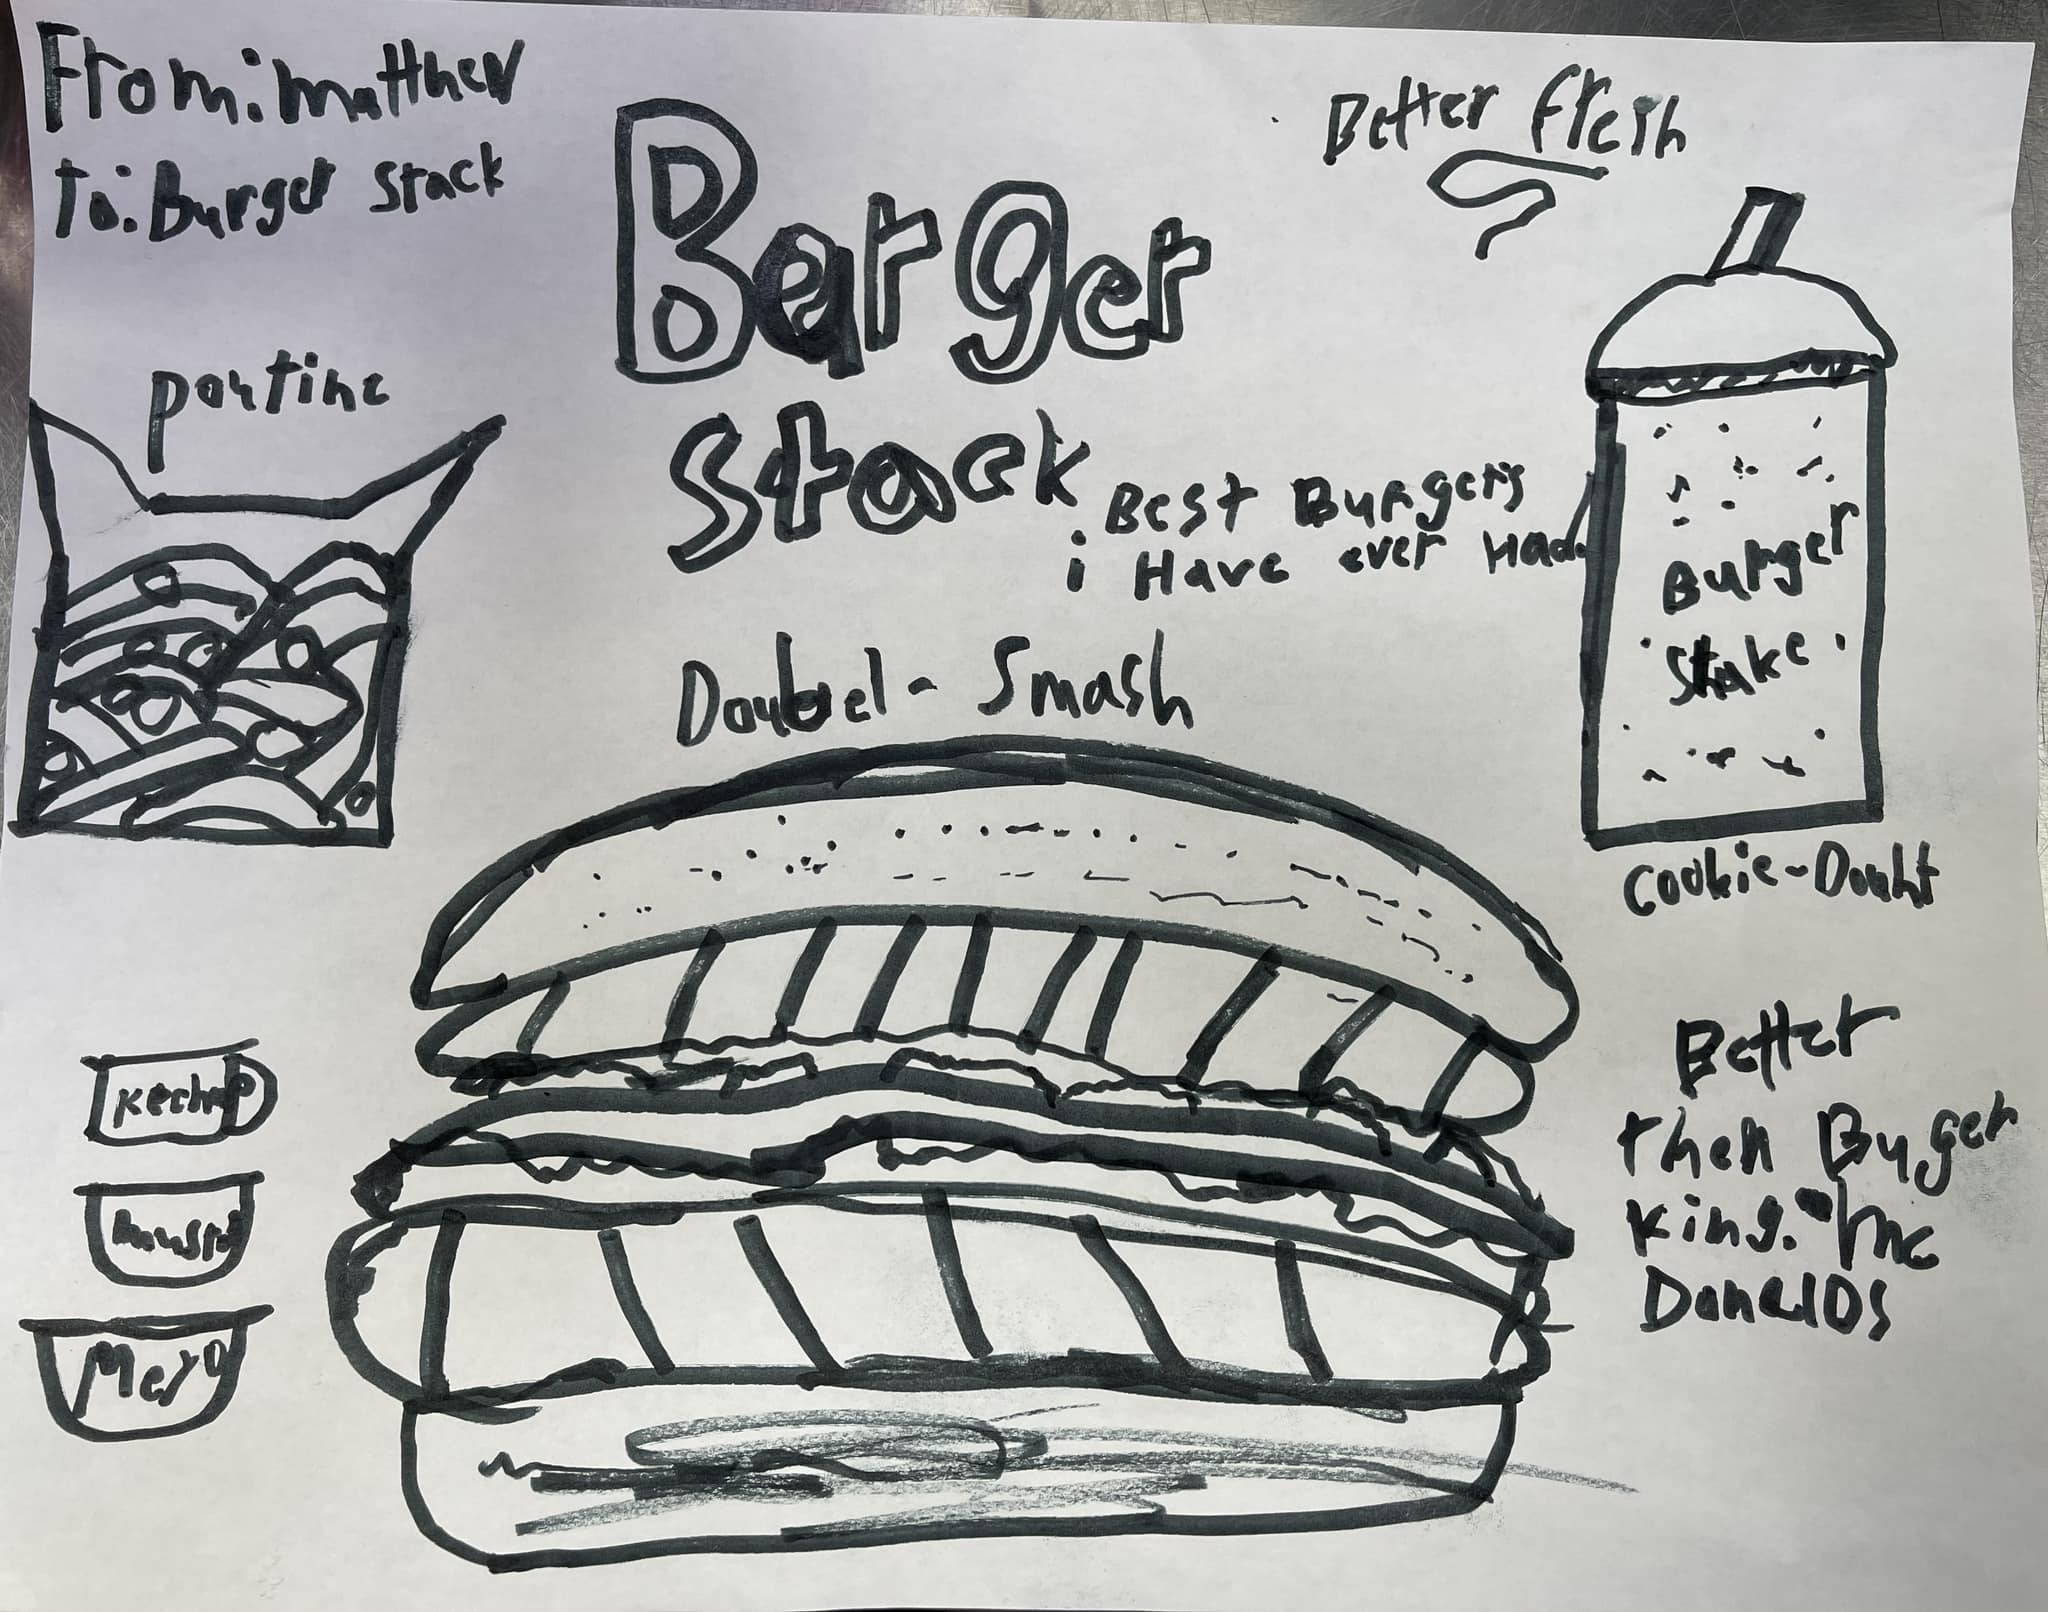 From: matthew
To: Burger Stack
Better fresh
Burger
Stack
poutine
Best Burgers
i Have ever Had.
Burger
Shake
Doubel - Smash
Cookie-Douht
Ketchup
Mayo
Better
then Burger
king. Mc
DonalDs